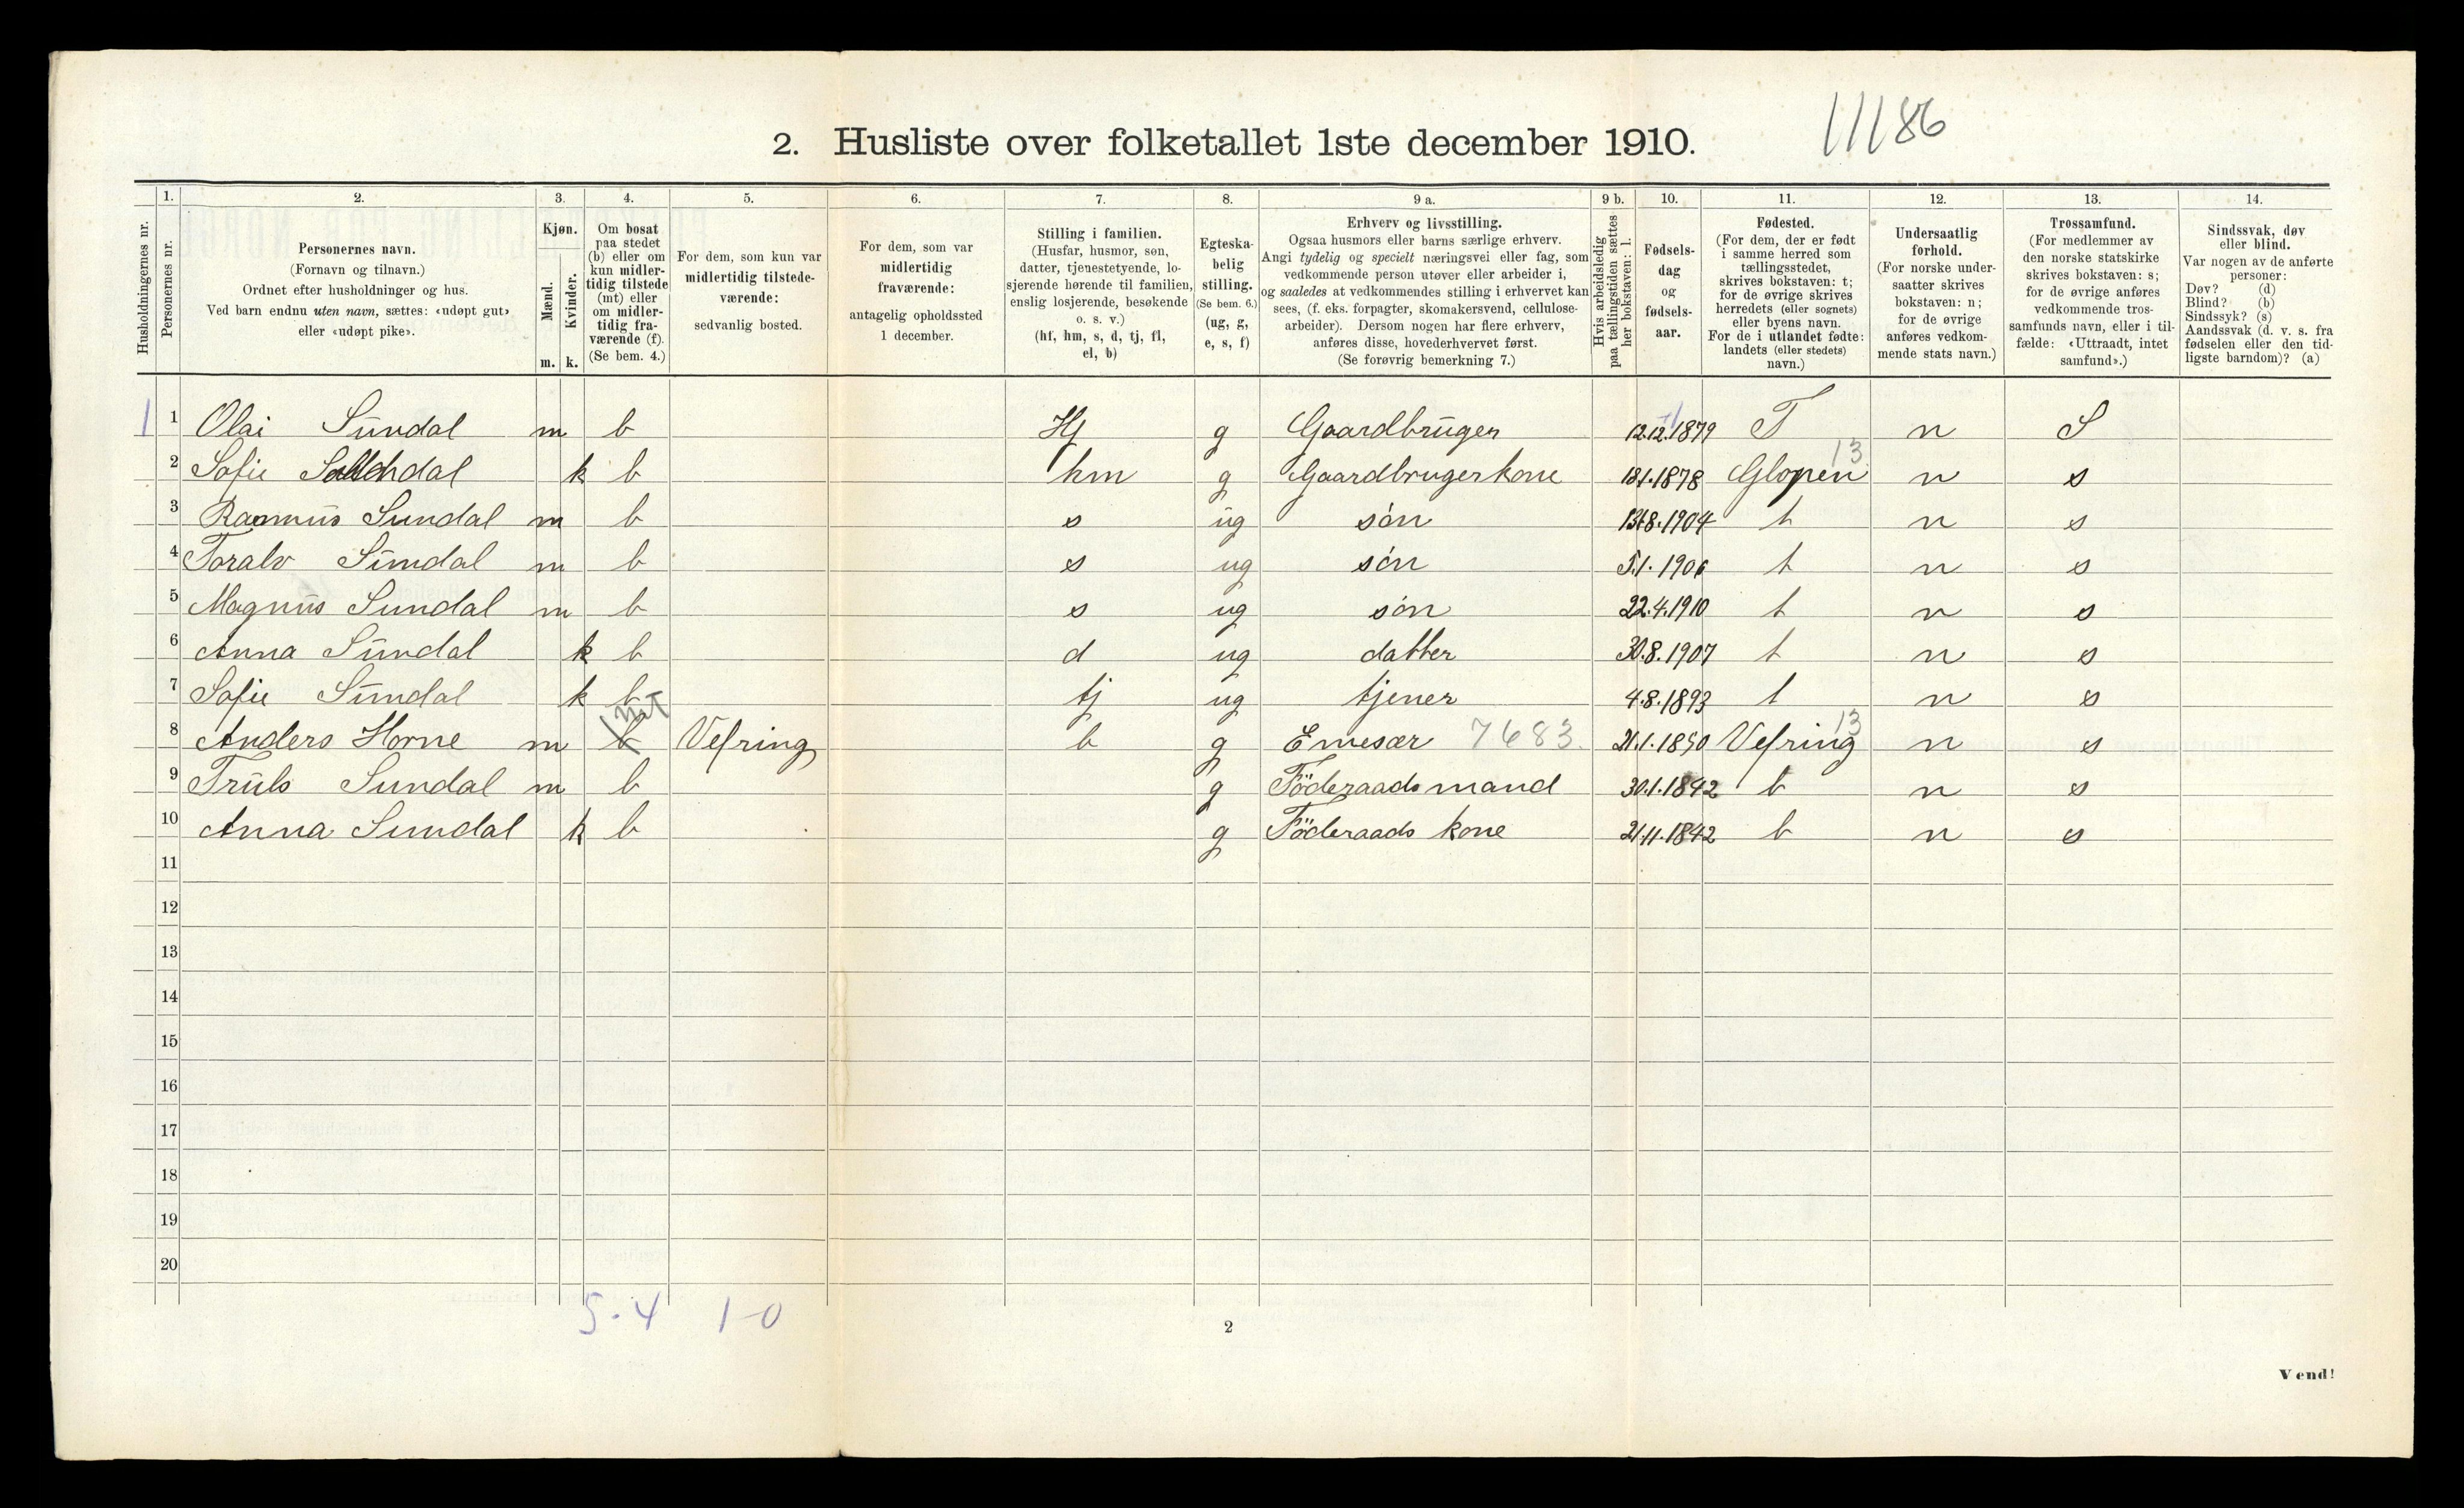 11186
2. Husliste over folketallet 1ste december 1910.
Husholdningernes nr.
1.
Personernes nr.
2.
Personernes navn.
(Fornavn og tilnavn.)
Ordnet efter husholdninger og hus.
Ved barn endnu uten navn, sættes: «udøpt gut»
eller «udøpt pike».
3.
Kjøn.
Mænd.
Kvinder.
m. k.
4.
Om bosat
paa stedet
(b) eller om
kun midler-
tidig tilstede
(mt) eller
om midler-
tidig fra-
værende (f).
(Se bem. 4.)
5.
For dem, som kun var
midlertidig tilstede-
værende:
sedvanlig bosted.
6.
For dem, som var
midlertidig
fraværende:
antagelig opholdssted
1 december.
7.
Stilling i familien.
(Husfar, husmor, søn,
datter, tjenestetyende, lo-
sjerende hørende til familien,
enslig losjerende, besøkende
o. s. v.)
(hf, hm, s, d, tj, fl,
el, b)
8.
Egteska-
belig
stilling.
(Se bem. 6.)
(ug, g,
e, s, f)
9 a.
Erhverv og livsstilling.
Ogsaa husmors eller barns særlige erhverv.
Angi tydelig og specielt næringsvei eller fag, som
vedkommende person utøver eller arbeider i,
og saaledes at vedkommendes stilling i erhvervet kan
sees, (f. eks. forpagter, skomakersvend, cellulose-
arbeider). Dersom nogen har flere erhverv,
anføres disse, hovederhvervet først.
(Se forøvrig bemerkning 7.)
9 b.
Hvis arbeidsledig
paa tællingstiden sættes
her bokstaven: l.
10.
Fødsels-
dag
og
fødsels-
aar.
11.
Fødested.
(For dem, der er født
i samme herred som
tællingsstedet,
skrives bokstaven: t;
for de øvrige skrives
herredets (eller sognets)
eller byens navn.
For de i utlandet fødte:
landets (eller stedets)
navn.)
12.
Undersaatlig
forhold.
(For norske under-
saatter skrives
bokstaven: n;
for de øvrige
anføres vedkom-
mende stats navn.)
13.
Trossamfund.
(For medlemmer av
den norske statskirke
skrives bokstaven: s;
for de øvrige anføres
vedkommende tros-
samfunds navn, eller i til-
fælde: «Uttraadt, intet
samfund».)
14.
Sindssvak, døv
eller blind.
Var nogen av de anførte
personer:
Døv? (d)
Blind? (b)
Sindssyk? (s)
Aandssvak (d. v. s. fra
fødselen eller den tid-
ligste barndom)? (a)
1 1 Olai Sundal m b Hf g Gaardbruger 12.12.1879 T n S
2 Sofie Sundal k b hm g Gaardbrugerkone 1878 Glopen 13 n s
3 Rasmus Sundal m b s ug søn 8.1904 t n s
4 Toralv Sundal m b s ug søn 5.1.1906 t n s
5 Magnus Sundal m b s ug søn 22.4.1910 t n s
6 Anna Sundal k b d ug datter 30.8.1907 t n s
7 Sofie Sundal k b tj ug tjener 4.8.1893 t n s
8 Anders Horne m b mt Vefring b g 7683 21.1.1850 Vefring 13 n s
9 Truls Sundal m b g Föderaadsmand 30.1.1842 t n s
10 Anna Sundal k b g Föderaads kone 21.11.1842 t n s
11
12
13
14
15
16
17
18
19
20
5-4 1-0
2
Vend!